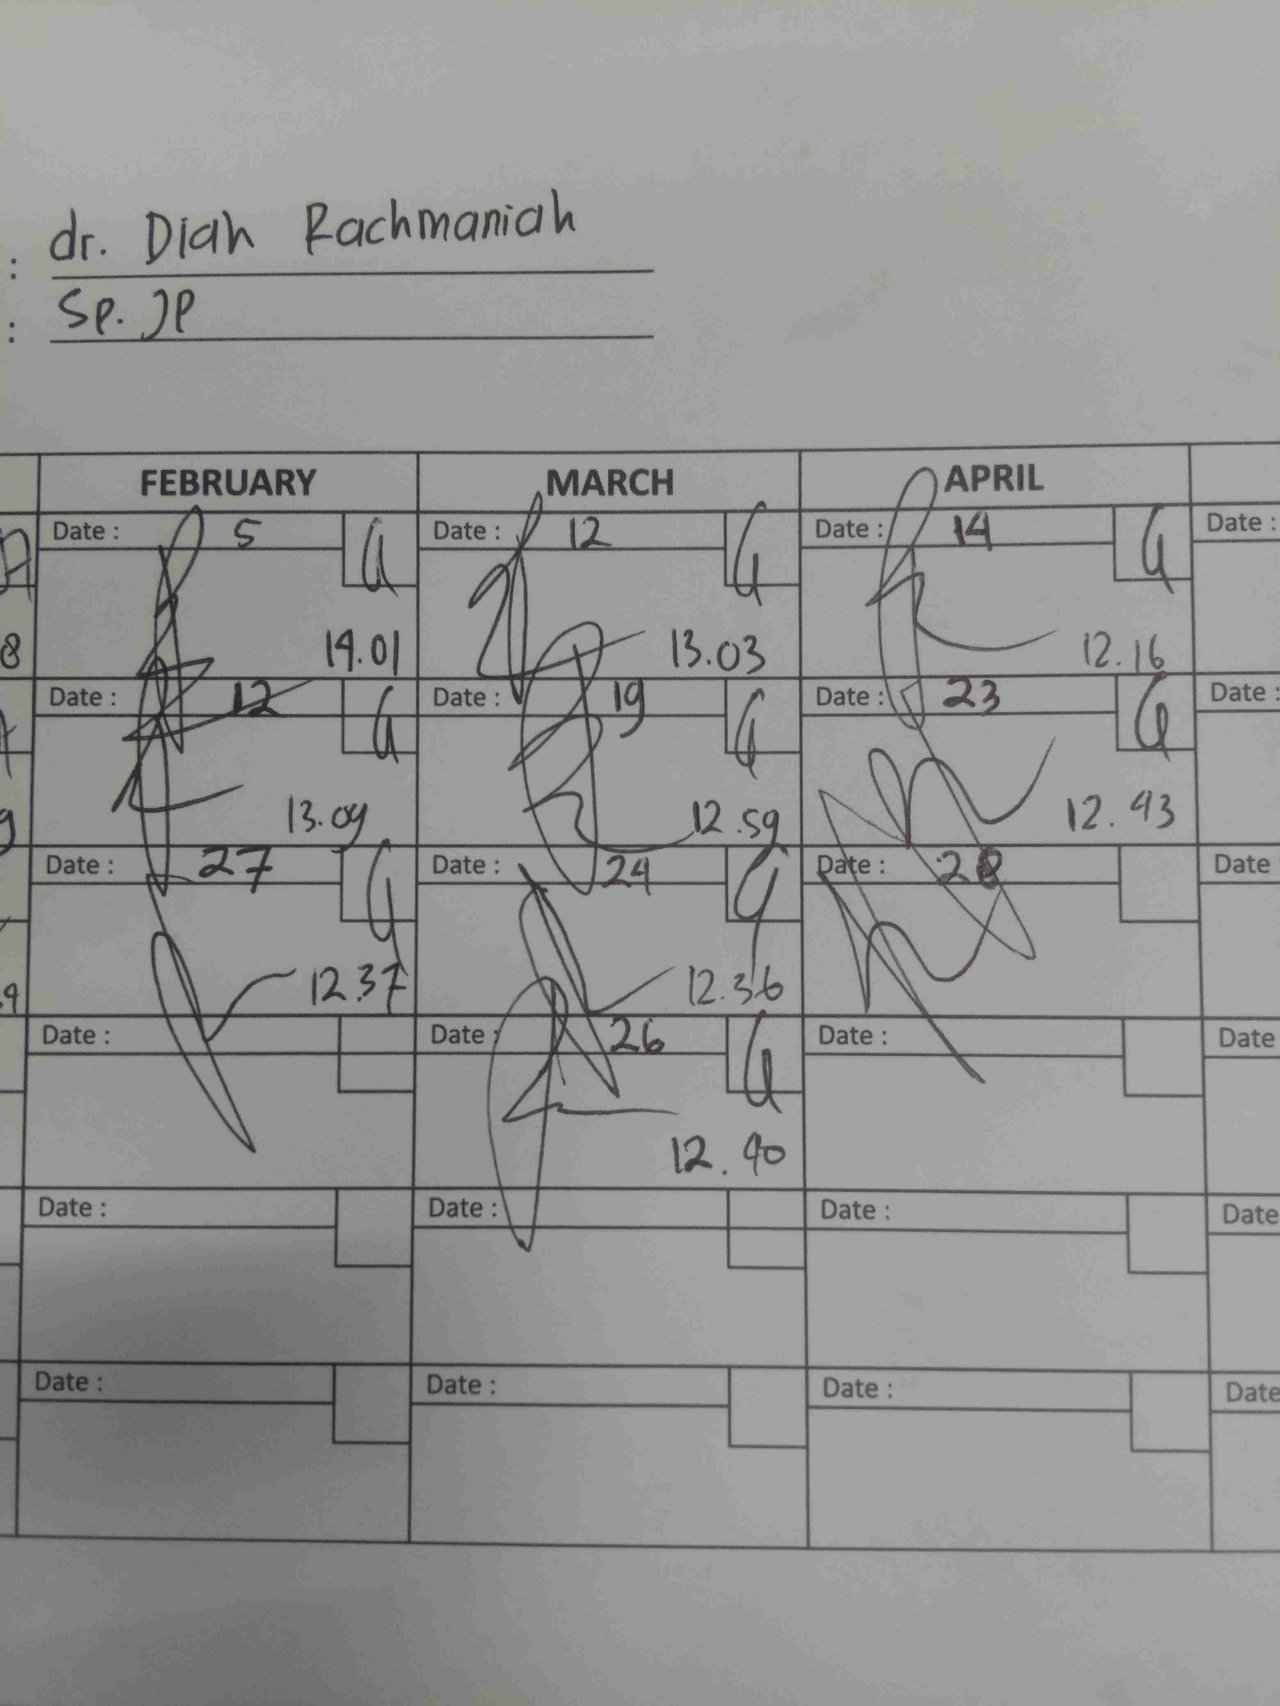 : dr. Diah Rachmaniah
: Sp. JP
FEBRUARY MARCH APRIL
Date : 5 Date : 12 Date : 14 Date :
8 14.01 13.03 12.16
Date : 12 Date : 19 Date : 23 Date :
9 13.09 12.59 12.43
Date : 27 Date : 24 Date : 28 Date
12.37 12.36
Date : Date : 26 Date : Date
12.40
Date : Date : Date : Date
Date : Date : Date : Date